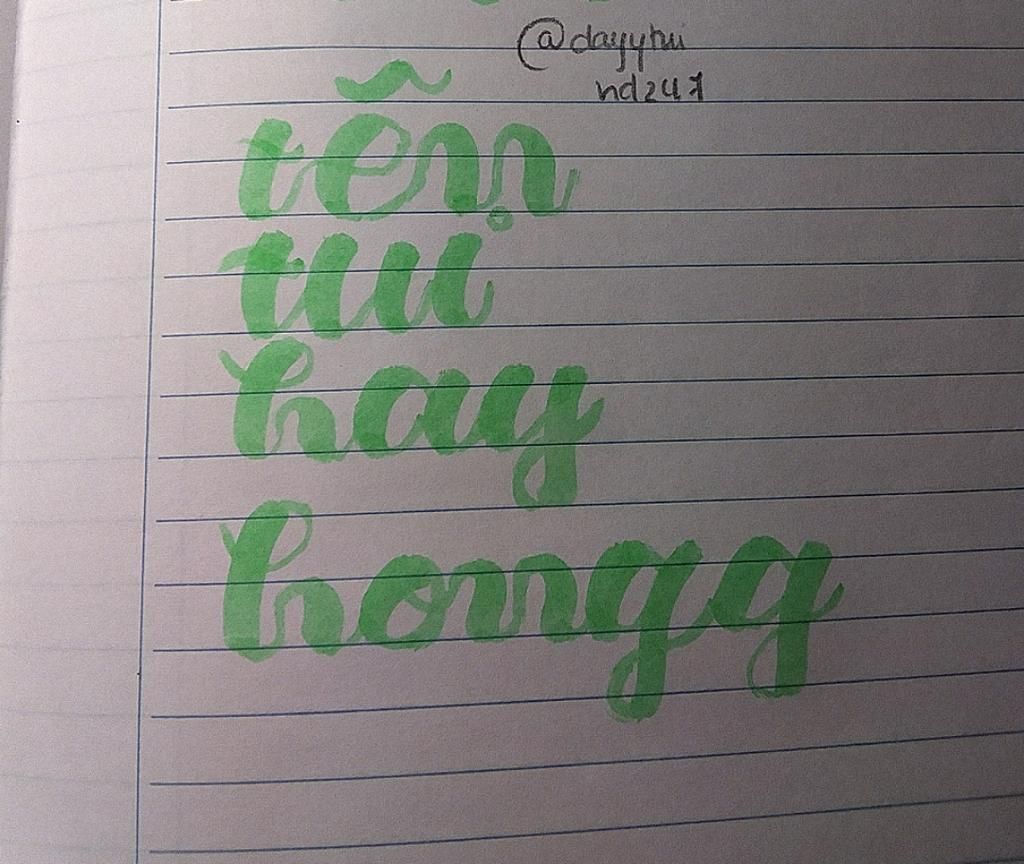 @dayyhui
nd247
tên
tui
hay
hongg